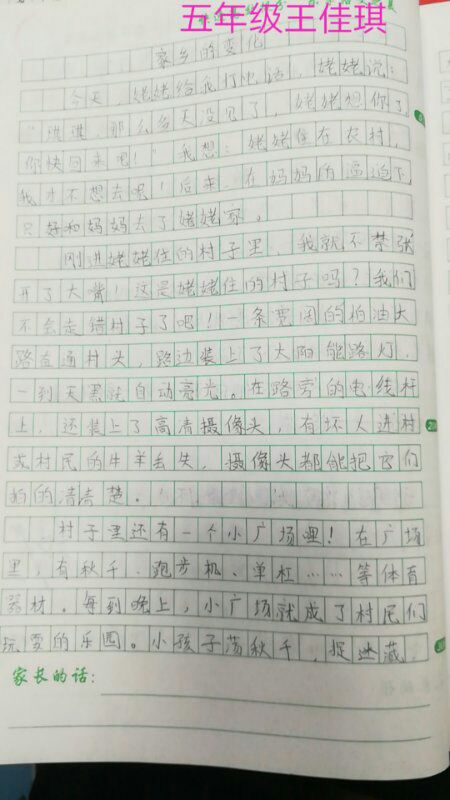 五年级王佳琪
家乡的变化
今天，姥姥给我打电话，姥姥说：
“琪琪，那么多天没见了，姥姥想你了，
你快回来吧！”我想：姥姥住在农村，
我才不想去呢！后来，在妈妈的逼迫下
只好和妈妈去了姥姥家。
刚进姥姥住的村子里，我就不禁张
开了大嘴！这是姥姥住的村子吗？我们
不会走错村子了吧！一条宽阔的柏油大
路直通村头，路边装上了太阳能路灯，
一到天黑就自动亮光。在路旁的电线杆
上，还装上了高清摄像头，有坏人进村
或村民的牛羊丢失，摄像头都能把它们
拍的清清楚楚。
村子里还有一个小广场哩！在广场
里，有秋千、跑步机、单杠……等体育
器材。每到晚上，小广场就成了村民们
玩耍的乐园。小孩子荡秋千，捉迷藏，
家长的话：